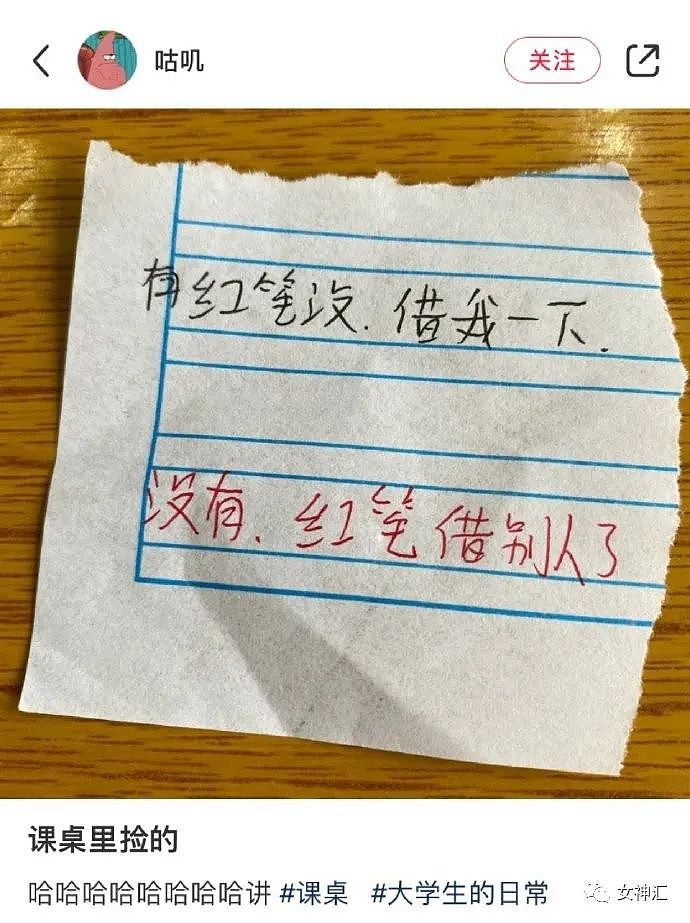 咕叽
关注
有红笔没.借我一下.
没有.红笔借别人了
课桌里捡的
哈哈哈哈哈哈哈哈讲 #课桌 #大学生的日常
女神汇